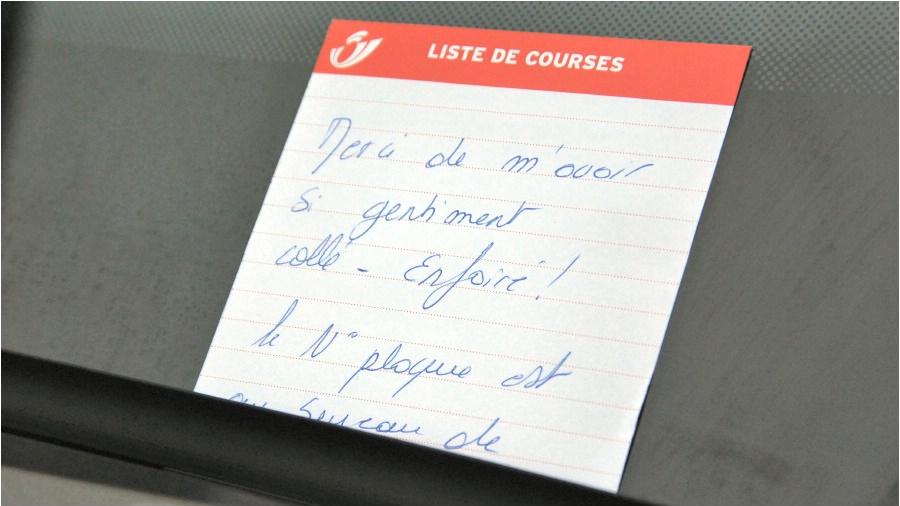 LISTE DE COURSES
Merci de m'avoir
si gentiment
collé - Enfoiré !
le N° plaque est
au bureau de